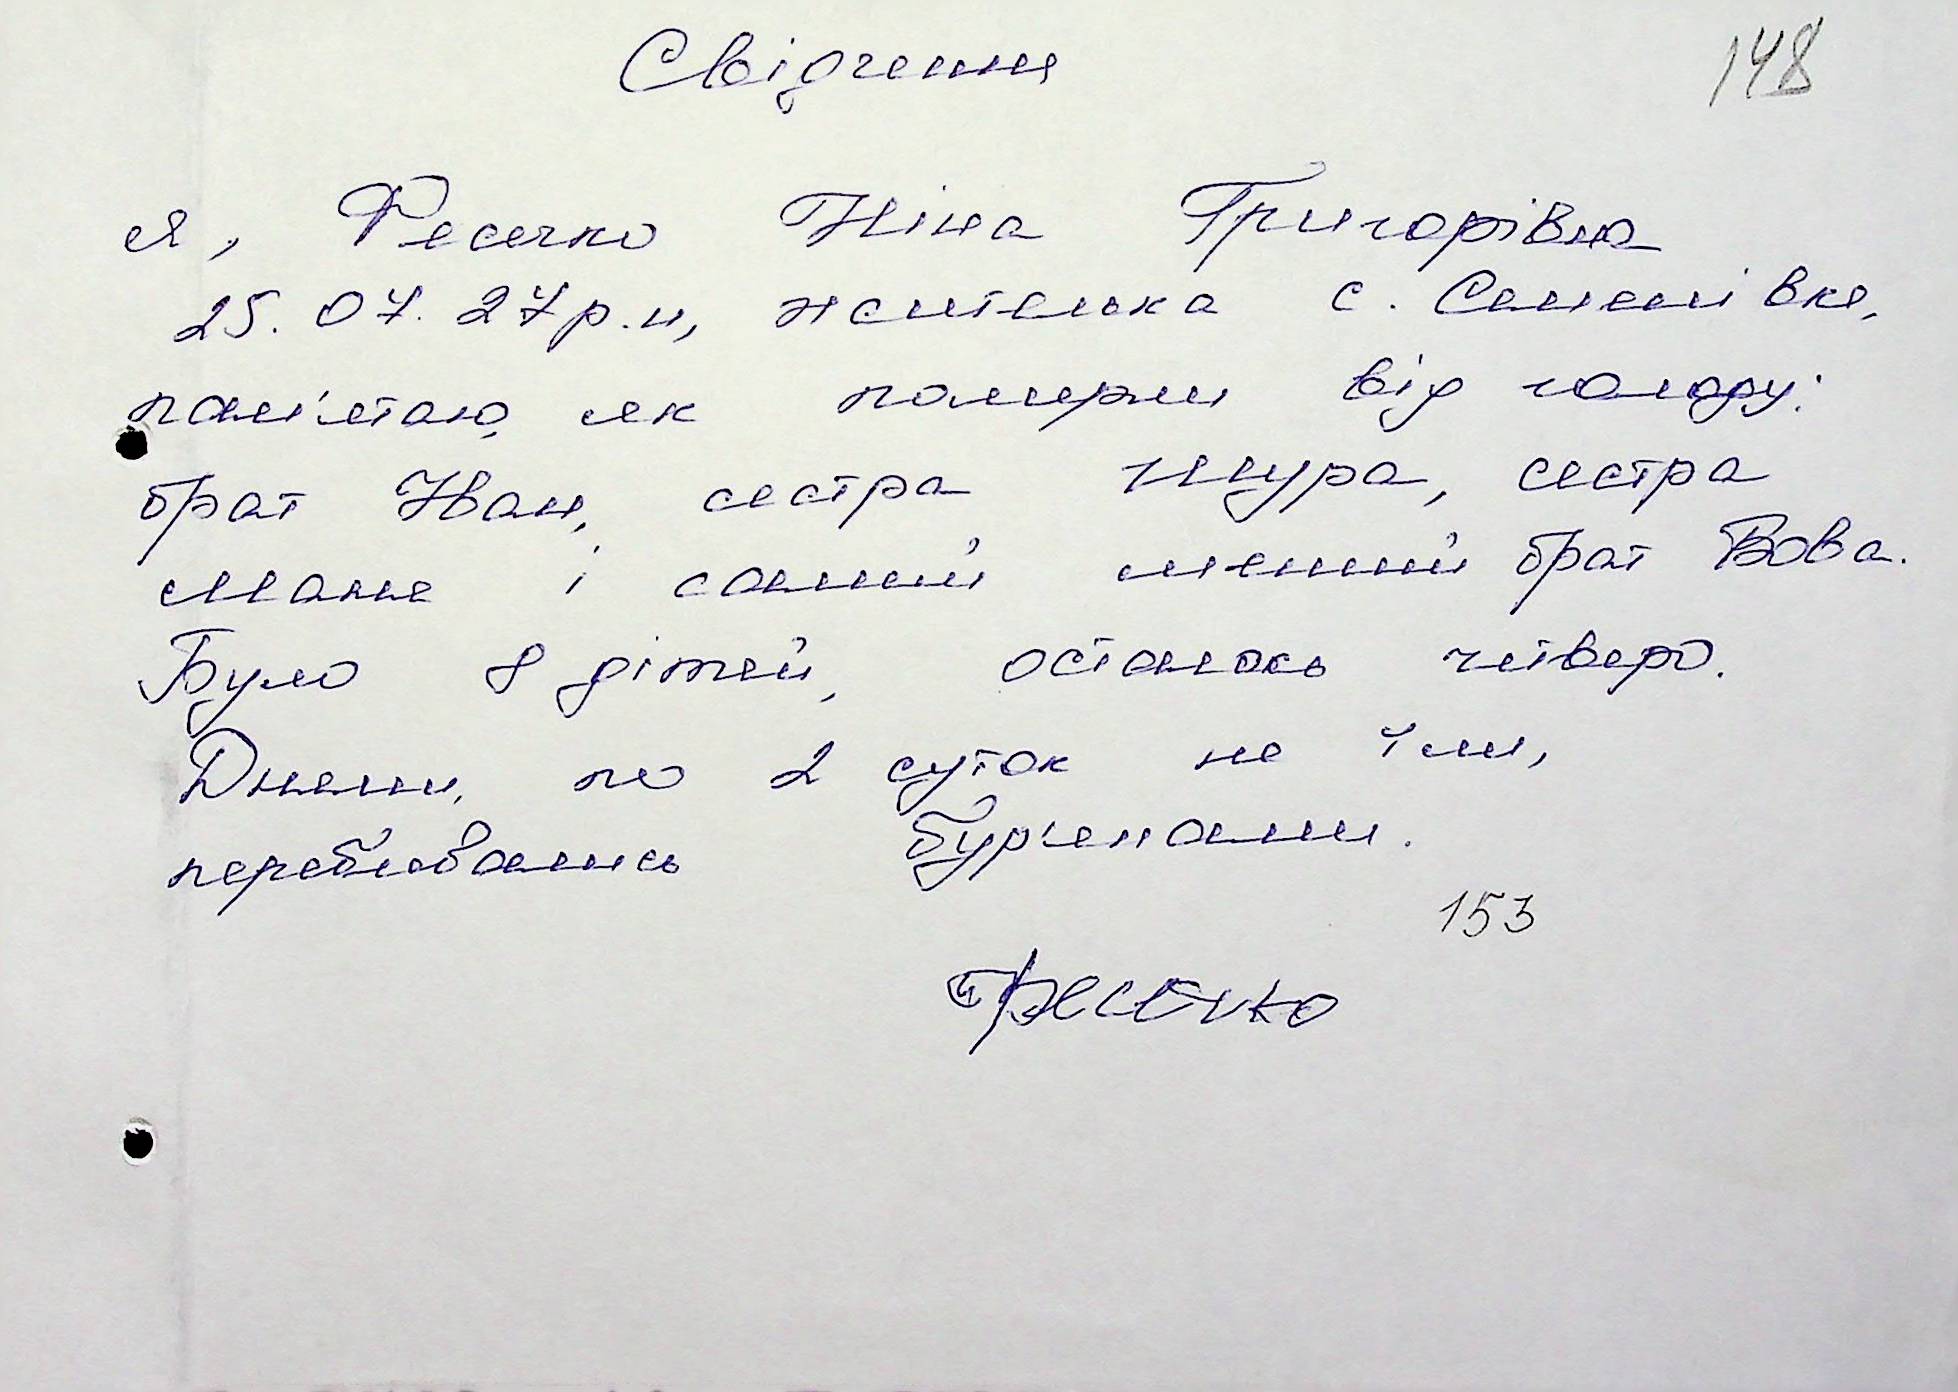 Свідчення
148
я, Фесечко Ніна Григорівна
25.07.27р.н, жителька с. Семенівка,
пам'ятаю, як померли від голоду:
брат Іван, сестра Шура, сестра
Маня і самий менший брат Вова.
Було 8 дітей, осталось четверо.
Днями, по 2 суток не їли,
перебивались бур'янами.
153
Фесечко